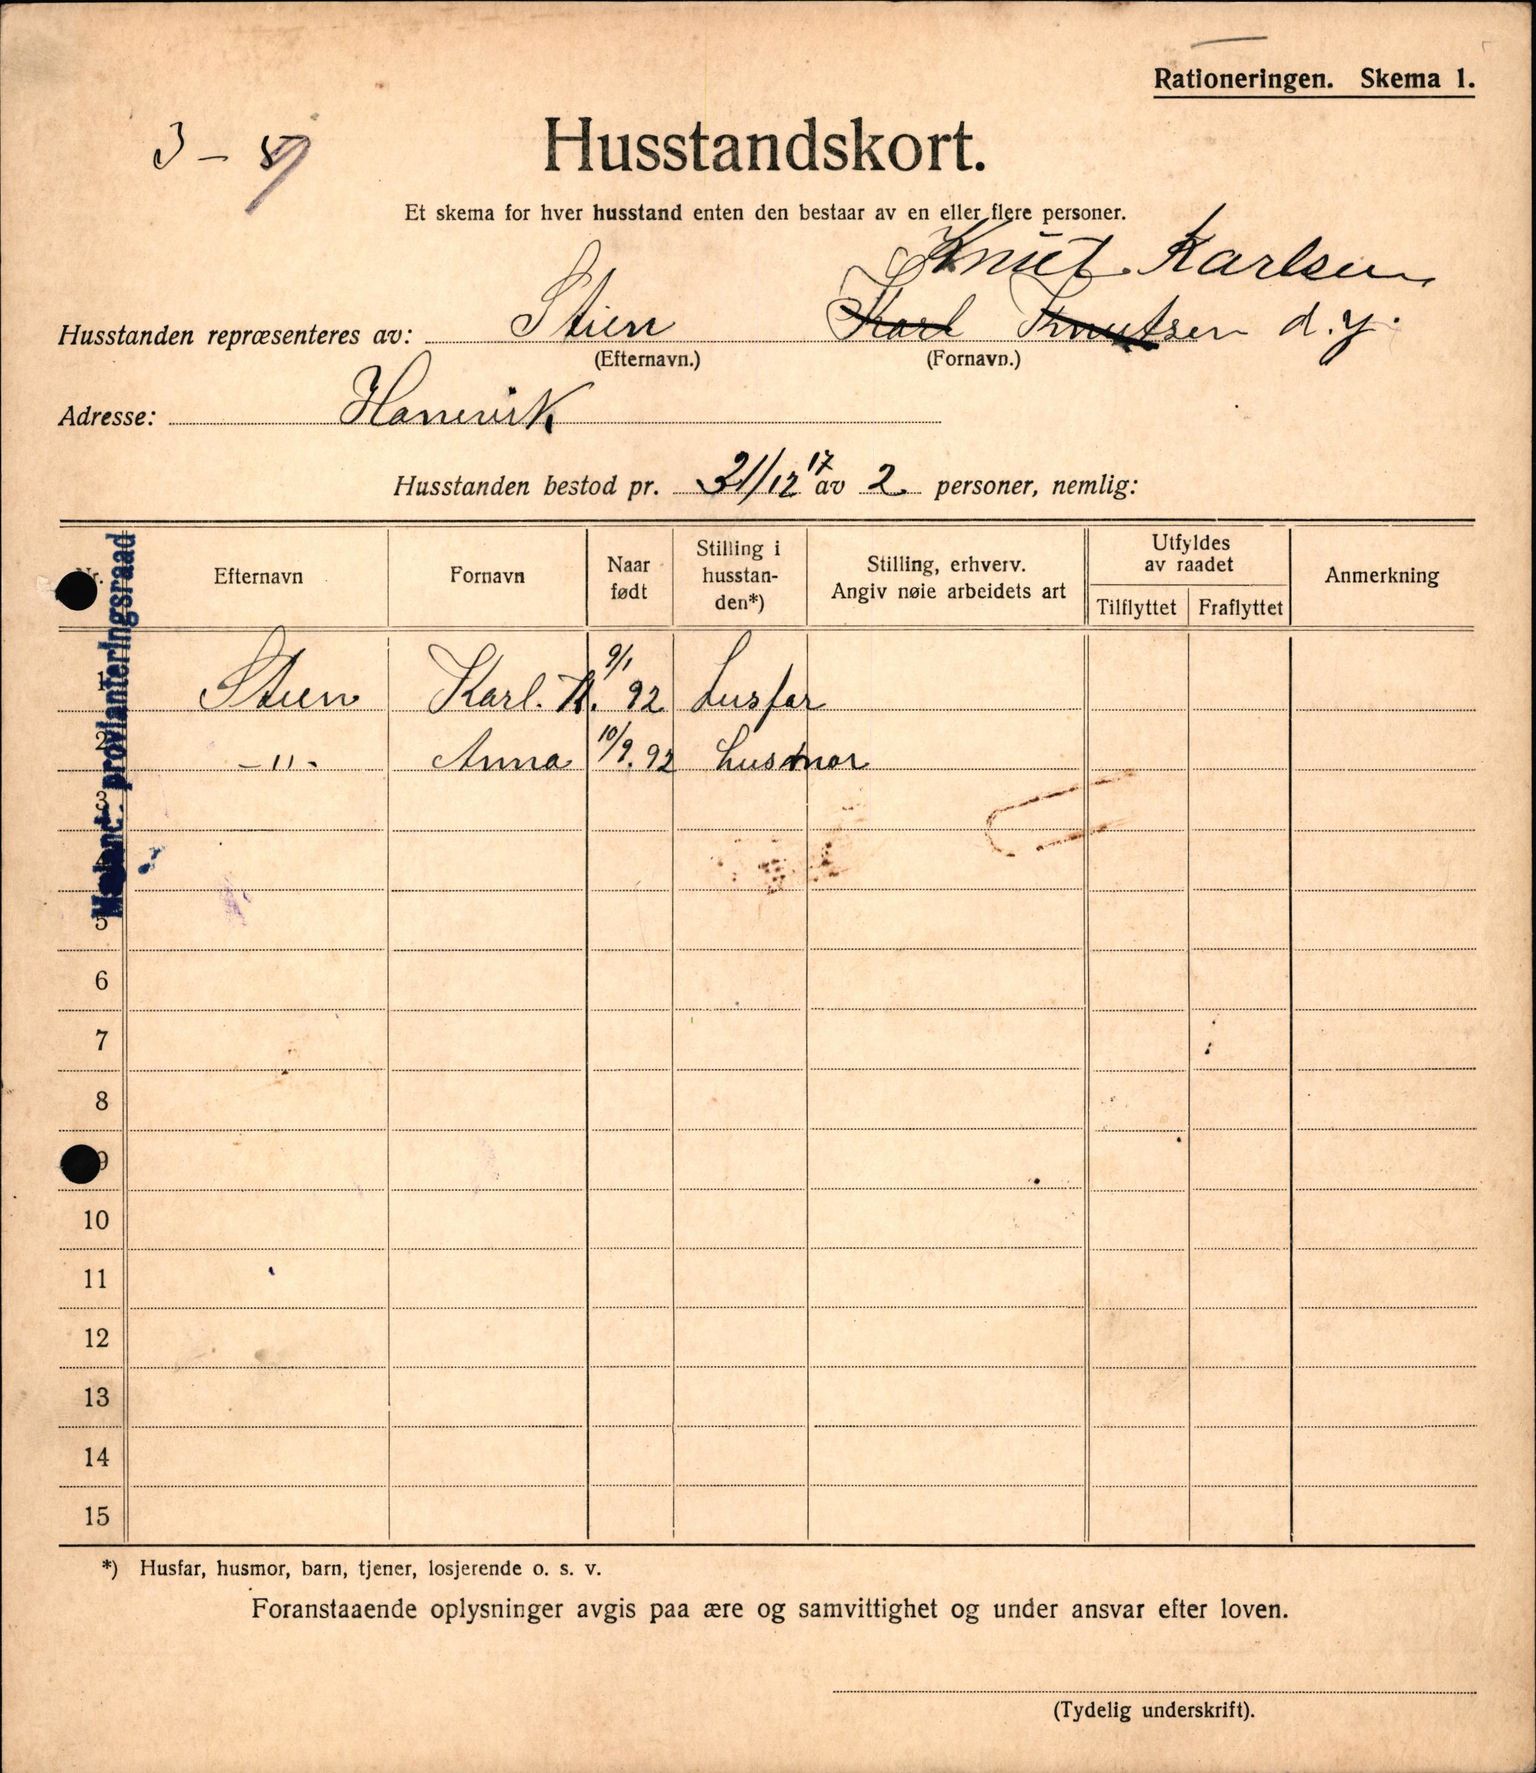 Rationeringen. Skema 1.
3 – 57
Husstandskort.
Et skema for hver husstand enten den bestaar av en eller flere personer.
Knut Karlsen
Husstanden repræsenteres av: Stien Karl Knutsen d.y.
(Efternavn.) (Fornavn.)
Adresse: Hanevik
Husstanden bestod pr. 31/12 17 av 2 personer, nemlig:
Nr. Efternavn Fornavn Naar født Stilling i husstan-den*) Stilling, erhverv. Angiv nøie arbeidets art Utfyldes av raadet Tilflyttet Fraflyttet Anmerkning
provianteringsraad
1 Stien Karl. K. 9/1 92 husfar
2 –"– Anna 10/9. 92 husmor
3
4
5
6
7
8
9
10
11
12
13
14
15
*) Husfar, husmor, barn, tjener, losjerende o. s. v.
Foranstaaende oplysninger avgis paa ære og samvittighet og under ansvar efter loven.
(Tydelig underskrift).